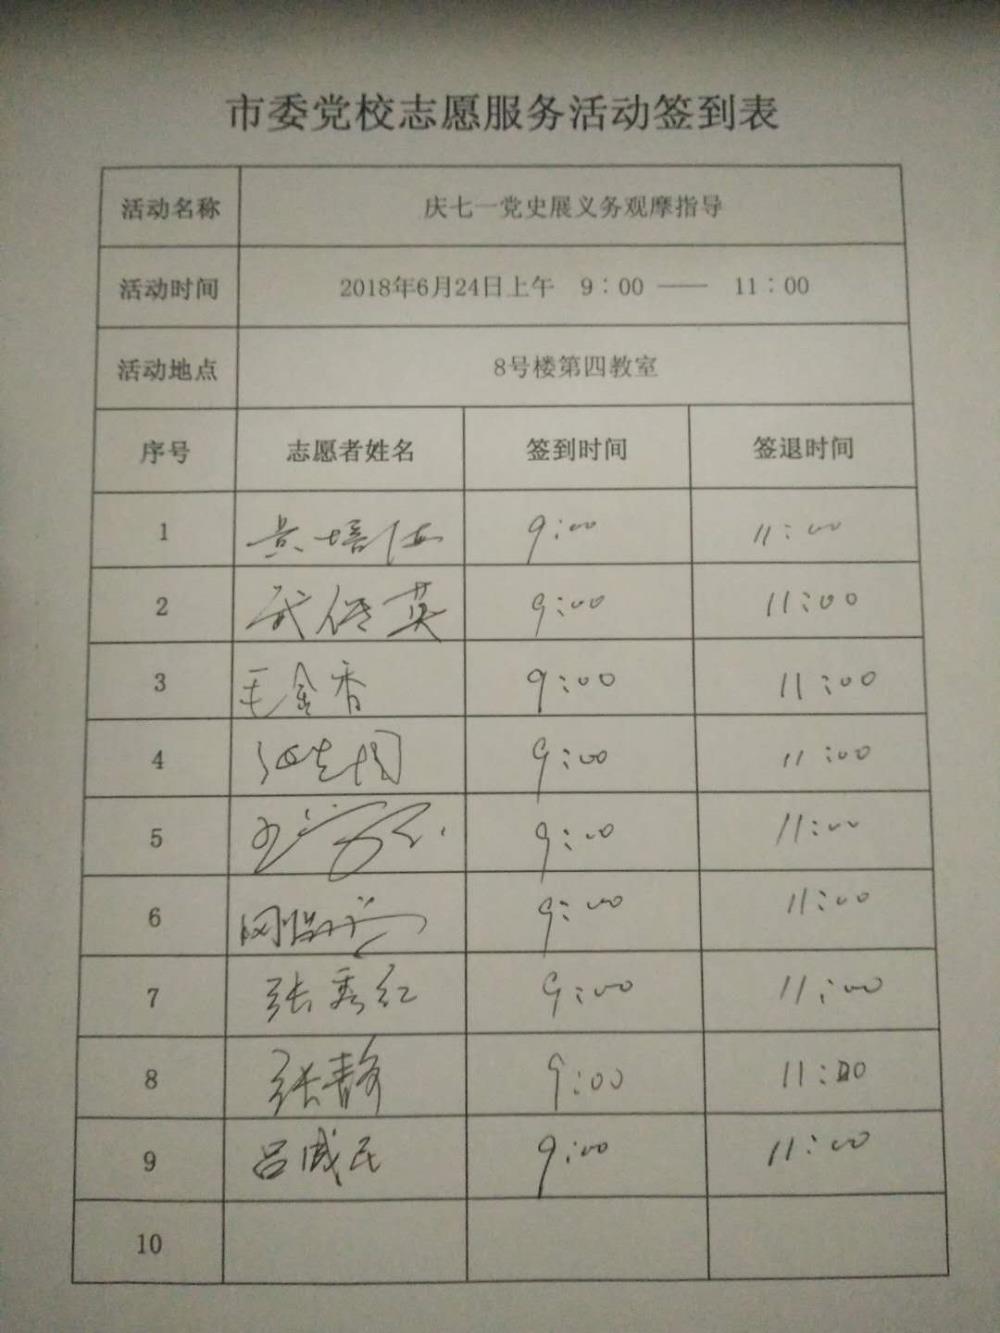 市委党校志愿服务活动签到表
活动名称 庆七一党史展义务观摩指导
活动时间 2018年6月24日上午 9：00 —— 11：00
活动地点 8号楼第四教室
序号 志愿者姓名 签到时间 签退时间
1 9:00 11:00
2 英 9:00 11:00
3 毛金香 9:00 11:00
4 9:00 11:00
5 9:00 11:00
6 9:00 11:00
7 张秀红 9:00 11:00
8 张静 9:00 11:00
9 吕威民 9:00 11:00
10